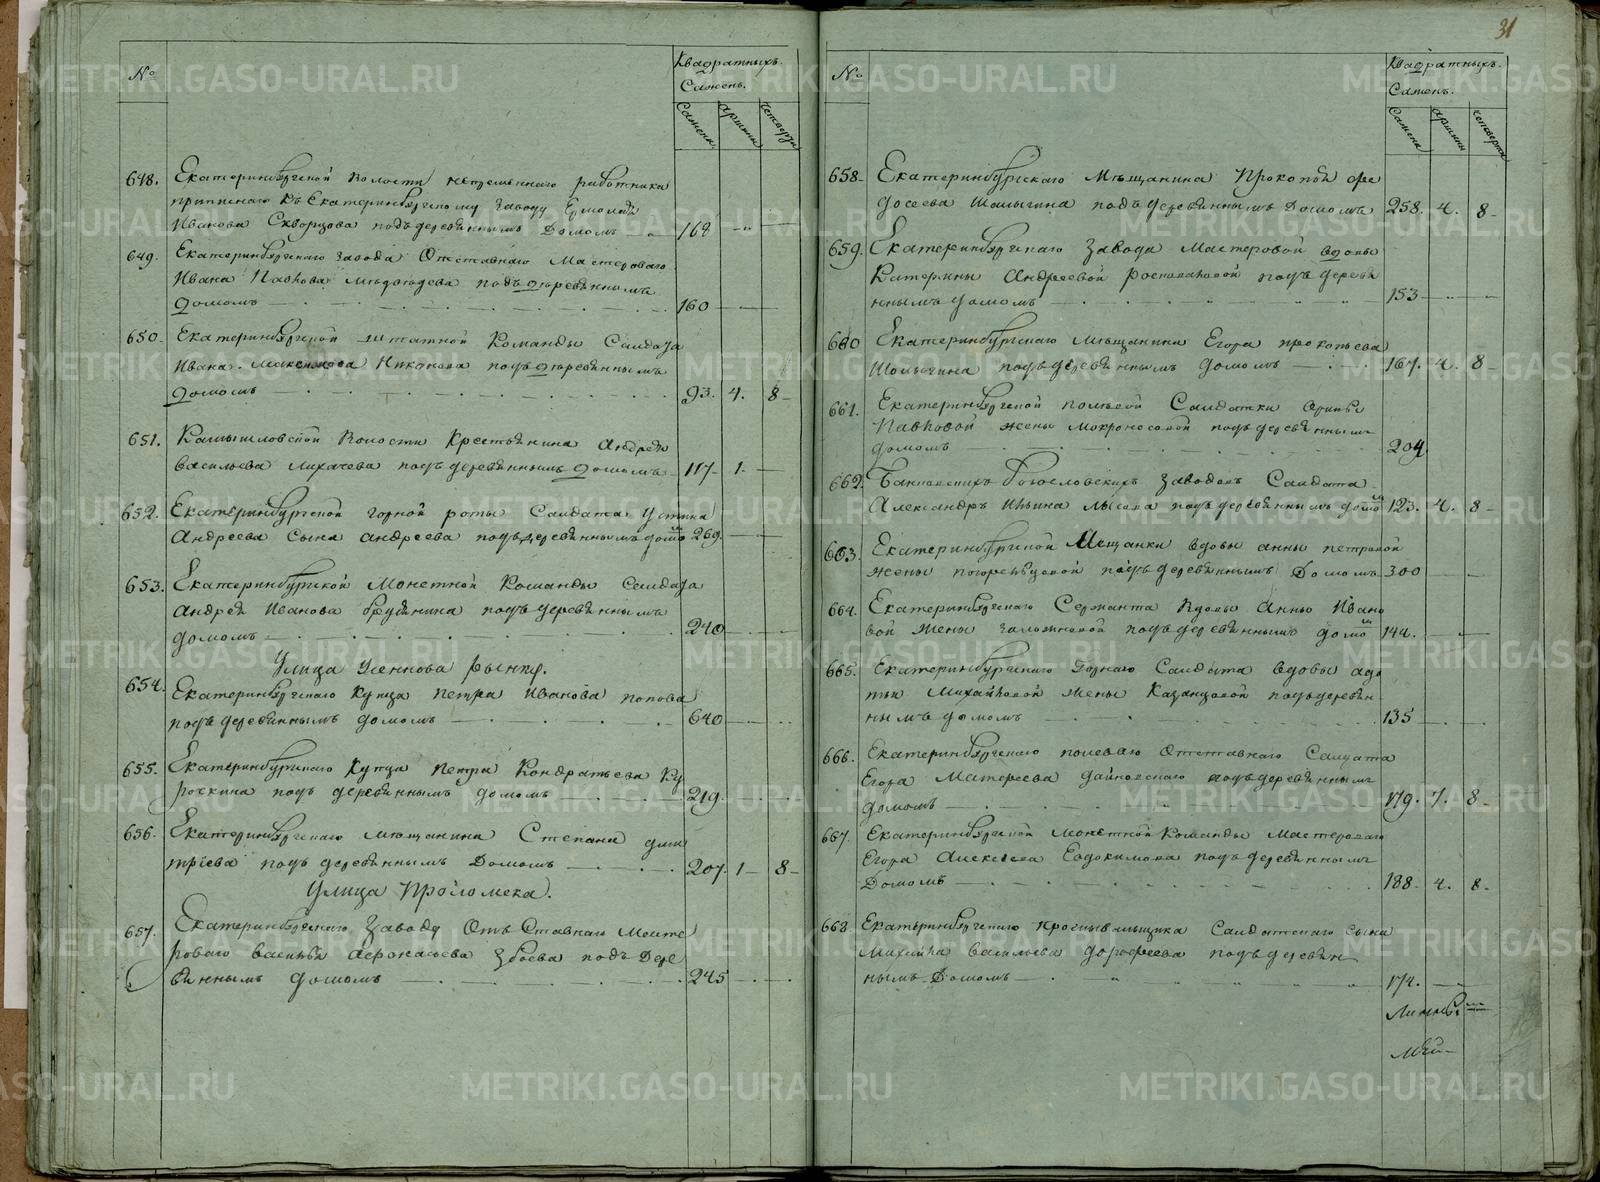 31
№
Квадратныхъ
Сажень.
Сажени
Аршины
Четверти
648. Екатеринбургской волости непременнаго работника
приписнаго къ Екатеринбургскому заводу Ермолая
Иванова Скворцова подъ деревяннымъ домомъ 168
649. Екатеринбургскаго завода Отставнаго Мастероваго
Ивана Павлова Медведева подъ деревяннымъ
домомъ 160
650. Екатеринбургской штатной Команды Салдата
Ивана Максимова Никонова подъ деревяннымъ
домомъ 93. 4. 8
651. Камышловской Волости Крестьянина Андрея
Васильева Лихачева подъ деревяннымъ домомъ 117 1.
652. Екатеринбургской горной роты Салдата Устина
Андреева сына Андреева подъ деревяннымъ домомъ 269.
653. Екатеринбургской Монетной Команды Салдата
Андрея Иванова Бруснина подъ деревяннымъ
домомъ 240
Улица Сеннова рынка.
654. Екатеринбургскаго Купца Петра Иванова Попова
подъ деревяннымъ домомъ 640
655. Екатеринбургскаго Купца Петра Кондратьева Ку
рочкина подъ деревяннымъ домомъ 219.
656. Екатеринбургскаго мещанина Степана Дми
трiева подъ деревяннымъ Домомъ 207. 1 8
Улица Проломска.
657. Екатеринбургскаго Заводу Отъставнаго Масте
роваго Василья Афонасьева Збоева подъ Дере
вяннымъ домомъ 245
№
Квадратныхъ
Сажень.
Сажени
Аршины
Четверти
658. Екатеринбургскаго Мещанина Прокопья Фе
досеева Шалыгина подъ деревяннымъ Домомъ 258. 4. 8
659. Екатеринбургскаго Завода Мастеровой вдовы
Катерины Андреевой подъ дереве
ннымъ домомъ 153
660 Екатеринбургскаго Мещанина Егора Прокопьева
Шалыгина подъ деревяннымъ домомъ 167. 4. 8
661. Екатеринбургской полевой Салдатки Орины
Павловой жены Мокроносовой подъ деревяннымъ
домомъ 204
662. Банковскихъ Богословскихъ Заводовъ Салдата
Александръ Ильина Лысова подъ деревяннымъ домомъ 123. 4. 8
663. Екатеринбургской Мещанки вдовы Анны Петровой
жены подъ деревяннымъ Домомъ 300
664. Екатеринбургскаго Сержанта Вдовы Анны Ивано
вой жены подъ деревяннымъ домомъ 144.
665. Екатеринбургскаго Горнаго Салдата вдовы Аго
Михайловой жены Казанцовой подъ деревян
нымъ домомъ 135
666. Екатеринбургскаго полеваго Отставнаго Салдата
Егора Матвеева подъ деревяннымъ
домомъ 179. 7. 8
667. Екатеринбургской Монетной Команды Мастероваго
Егора Алексеева Евдокимова подъ деревяннымъ
Домомъ 188. 4. 8
668 Екатеринбургскаго Салдатскаго сына
Михаила Васильева Дорофеева подъ деревян
нымъ Домомъ 174.